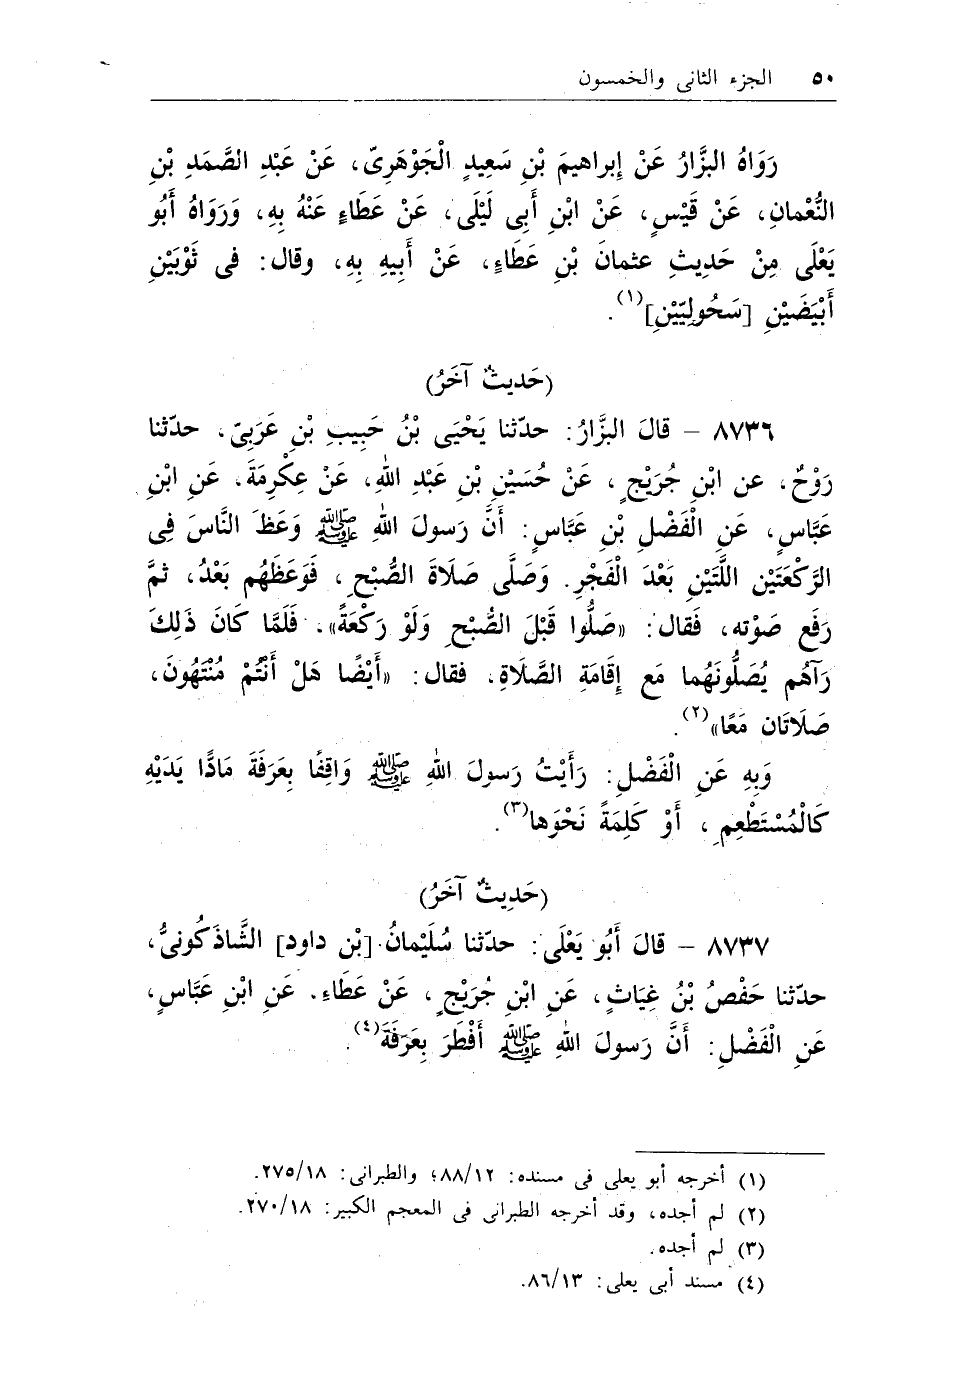 ٥٠ الجزء الثانى والخمسون
رَوَاهُ البَزَّارُ عَنْ إبراهيمَ بْنِ سَعِيدٍ الْجَوْهَرِىّ، عَنْ عَبْدِ الصَّمَدِ بْنِ
النُّعْمانِ، عَنْ قَيْسٍ، عَنْ ابْنِ أَبِى لَيْلَى، عَنْ عَطَاءٍ عَنْهُ بِهِ، وَرَوَاهُ أَبُو
يَعْلَى مِنْ حَدِيثِ عثمانَ بْنِ عَطَاءٍ، عَنْ أَبِيهِ بِهِ، وقال: فى ثَوْبَيْنِ
أَبْيَضَيْنِ [سَحُولِيّيْنِ](١).
(حَديثٌ آخَرُ)
٨٧٣٦ - قالَ البَزَّارُ: حدّثنا يَحْيَى بْنُ حَبِيبِ بْنِ عَرَبِىّ، حدّثنا
رَوْحٌ، عن ابْنِ جُرَيْجٍ، عَنْ حُسَيْنِ بْنِ عَبْدِ اللهِ، عَنْ عِكْرِمَةَ، عَنِ ابْنِ
عَبَّاسٍ، عَنِ الْفَضْلِ بْنِ عَبَّاسٍ: أَنَّ رَسولَ اللهِ ﷺ وَعَظَ النَّاسَ فِى
الرَّكْعَتَيْنِ اللَّتَيْنِ بَعْدَ الْفَجْرِ. وَصَلَّى صَلَاةَ الصُّبْحِ، فَوَعَظَهُم بَعْدُ، ثمَّ
رفَع صَوْته، فَقال: «صَلُّوا قَبْلَ الصُّبْحِ وَلَوْ رَكْعَةً». فَلَمَّا كَانَ ذَلِكَ
رَآهُم يُصَلُّونَهُما مَع إقَامَةِ الصَّلَاةِ، فقال: «أَيْضًا هَلْ أَنْتُمْ مُنْتَهُونَ،
صَلَاتَان مَعًا»(٢).
وَبِهِ عَنِ الْفَضْلِ: رَأَيْتُ رَسولَ اللهِ ﷺ وَاقِفًا بِعَرَفَةَ مَادًّا يَدَيْهِ
كَالْمُسْتَطْعِمِ، أَوْ كَلِمَةً نَحْوَها(٣).
(حَدِيثٌ آخَرُ)
٨٧٣٧ - قالَ أَبُو يَعْلَى: حدّثنا سُلَيْمانُ [بْن داود] الشَّاذَكُونىُّ،
حدّثنا حَفْصُ بْنُ غِيَاثٍ، عَنِ ابْنِ جُرَيْجٍ، عَنْ عَطَاءٍ. عَنِ ابْنِ عَبَّاسٍ،
عَنِ الْفَضْلِ: أَنَّ رَسولَ اللهِ ﷺ أَفْطَرَ بِعَرَفَةَ(٤).
(١) أخرجه أبو يعلى فى مسنده: ٨٨/١٢؛ والطبرانى: ٢٧٥/١٨.
(٢) لم أجده، وقد أخرجه الطبرانى فى المعجم الكبير: ٢٧٠/١٨.
(٣) لم أجده.
(٤) مسند أبى يعلى: ٨٦/١٣.